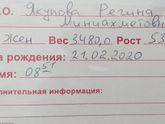 .О. Якупова Регина
Миниахметовн
Жен Вес 3480,0 Рост 53
а рождения: 21.02.2020
мя: 08 51
лнительная информация: